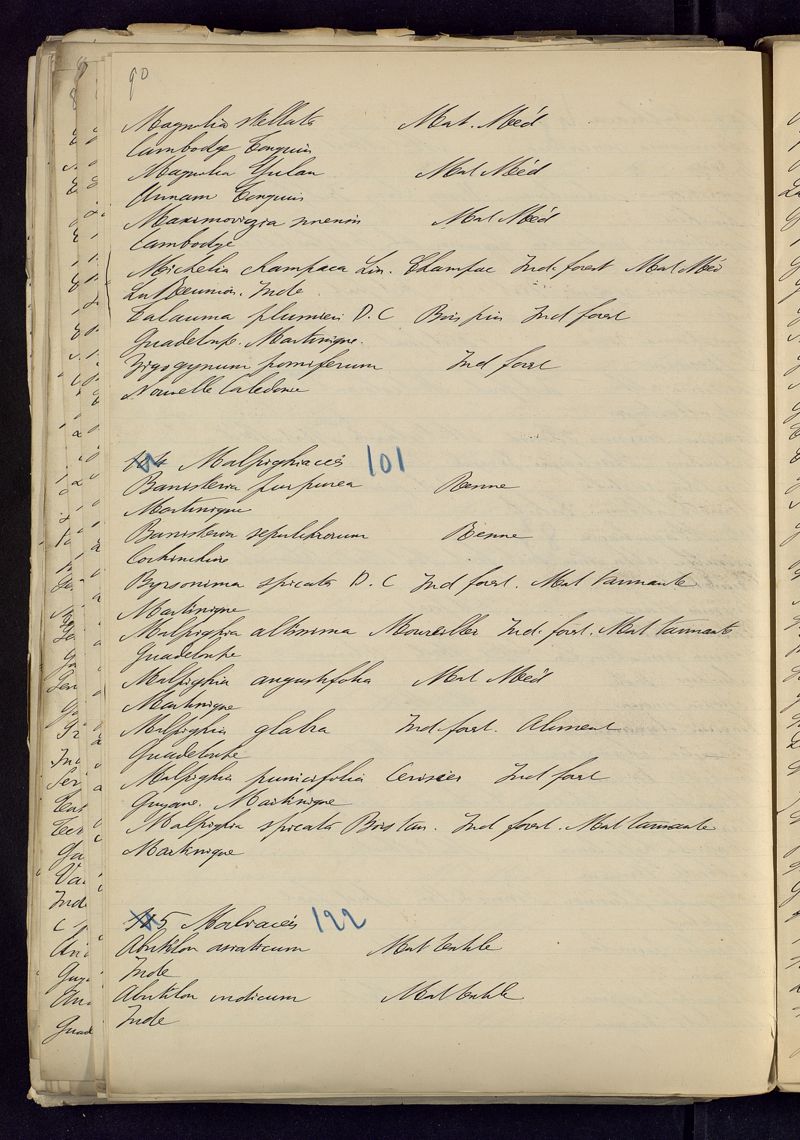 90
Magnolia stellata Mat. Méd
Cambodge Tonquin
Magnolia Yulan Mat Méd
Annam Tonquin
Maximovizia sinensis Mat Méd
Cambodge
Michelia champaca Lin. Champac Ind. forest Mat Méd
La Réunion. Inde
Talauma plumieri D.C Bois pin Ind forest
Guadeloupe. Martinique.
Zygogynum pomiferum Ind forest
Nouvelle Caledonie
Malpighiacées 101
Banisteria purpurea Renne
Martinique
Banisteria sepulchrorum Renne
Cochinchine
Byrsonima spicata D.C Ind forest. Mat tannante
Martinique
Malpighia altissima Moureiller Ind. forest. Mat tannante
Guadeloupe
Malpighia angustifolia Mat Méd
Martinique
Malpighia glabra Ind forest. Aliment
Guadeloupe
Malpighia punicifolia Cerisier Ind forest
Guyane. Martinique
Malpighia spicata Bois tan. Ind forest. Mat tannante
Martinique
5 Malvacées 122
Abutilon asiaticum Mat textile
Inde
Abutilon indicum Mat textile
Inde